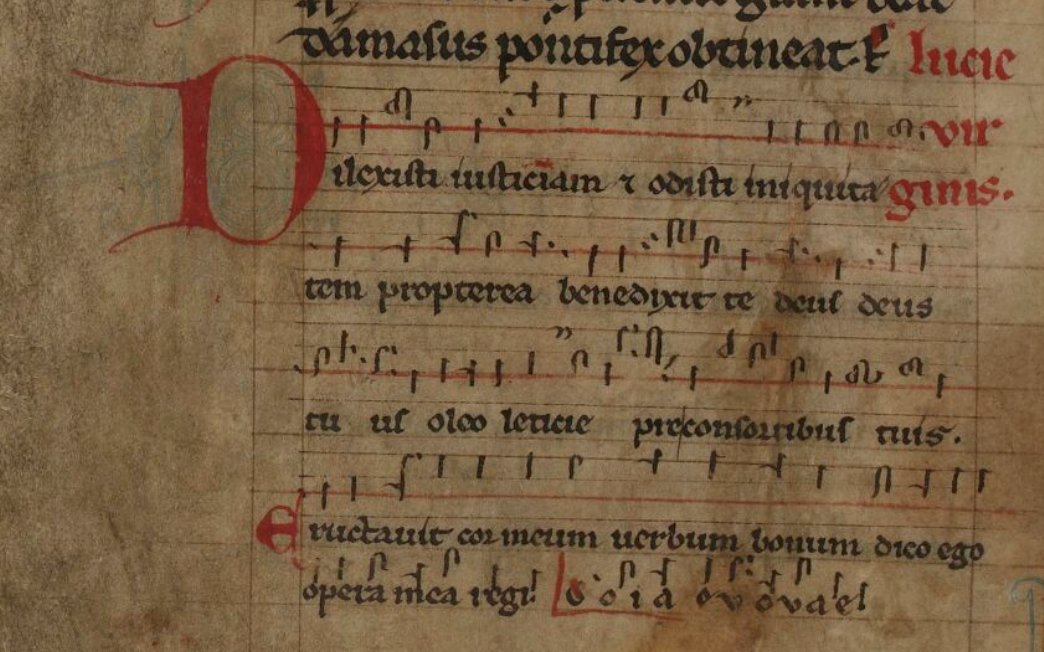 damasus pontifex obtineat. lucie
Dilexisti iusticiam ⁊ odisti iniquita uir
ginis.
tem propterea benedixit te deus deus
tu us oleo leticie preconsortibus tuis.
Eructauit cor meum uerbum bonum dico ego
opera mea regi